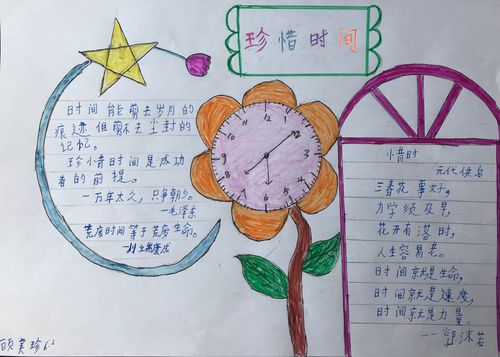 珍惜时间
时间能剪去岁月的
痕迹但剪不去尘封的
记忆。
珍惜时间是成功
者的前提。
一万年太久，只争朝夕。
—毛泽东
宽度时间等于宽度生命。
惜时
元代佚名
三春花事好，
为学须及早，
花开有落时，
人生容易老。
时间就是生命，
时间就是速度，
时间就是力量。
——郭沫若
6.2